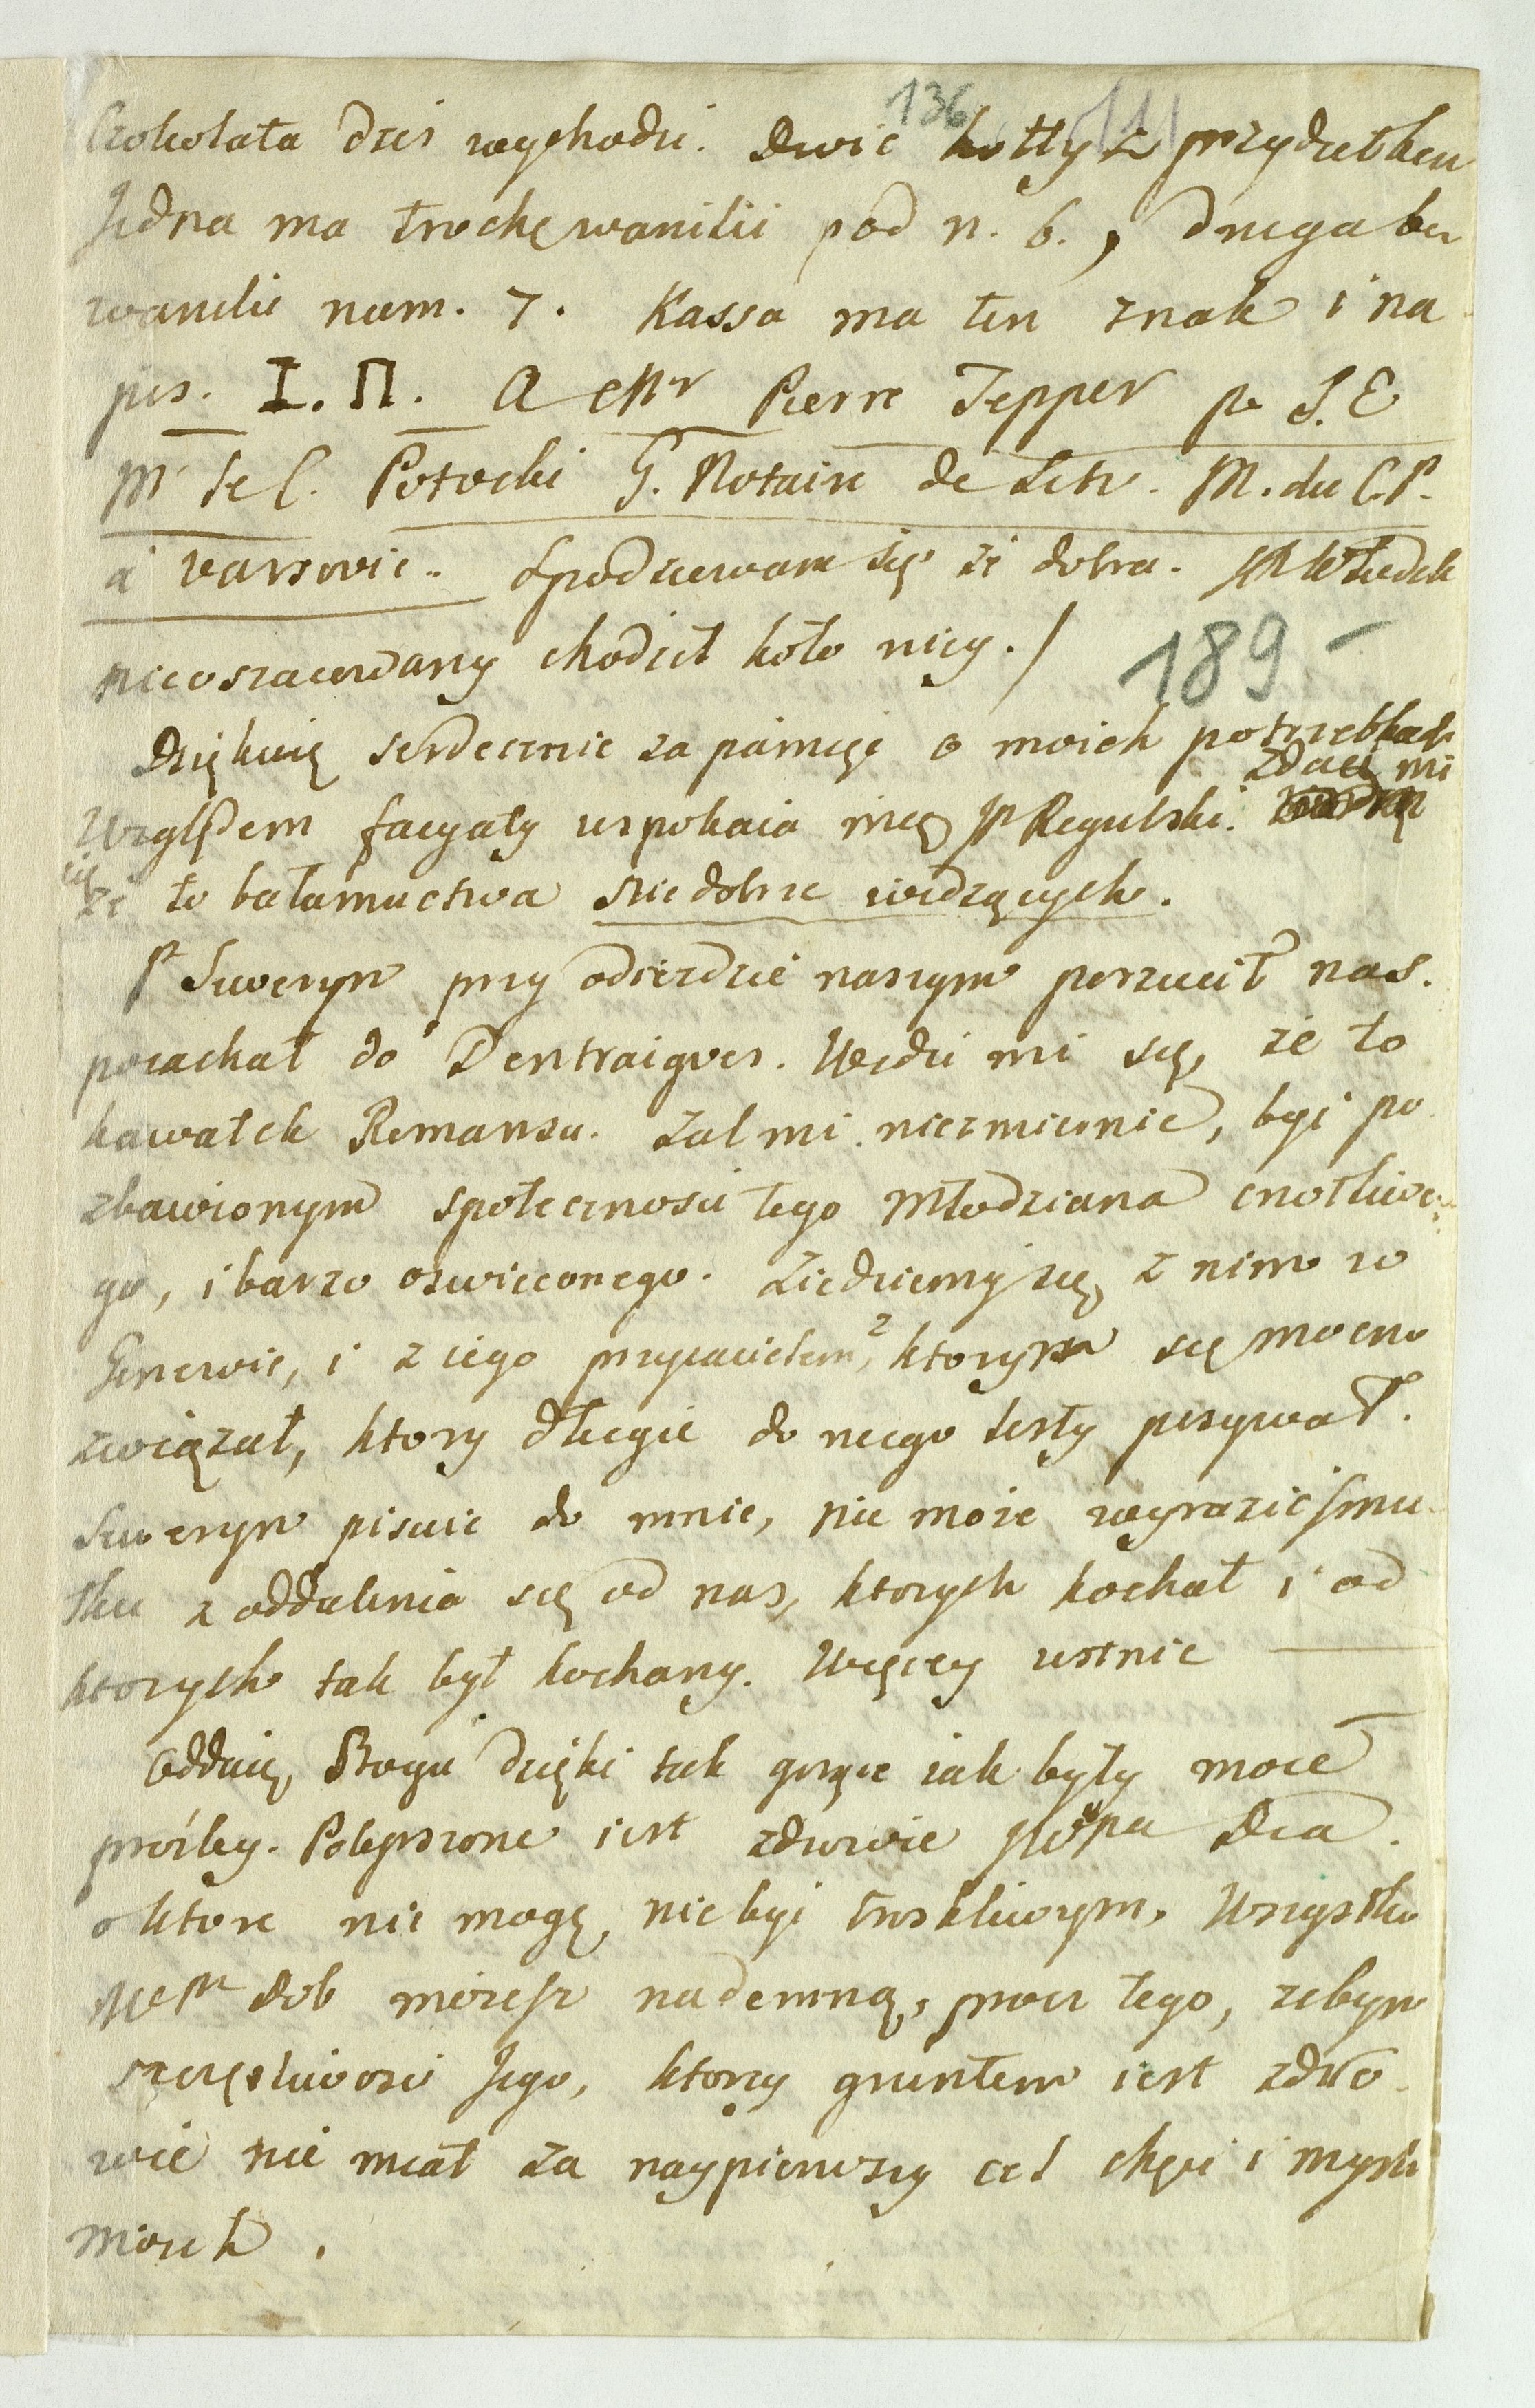 136
Czokolata dzis wychodzi. Dwie kotty z przydatkem
Jedna ma trochę wanilii pod n. 6., druga bez
wanilii num. 7. Kassa ma ten znak i na
pis. I. П. A Mr Pierre Tepper pr S. E
Mr le C. Potocki G. Notaire de Litv. M. du C.P.
à Varsovie. Spodziewam się że dobra.
nieoszacowany chodził koło niey./
189 -
Dziękuię serdecznie za pamięć o moich potrzebkach
zdaie mi
Względem facyaty uspokaia mię JP Regulski.
się
że to bałamuctwa niedobrze widzących.
P Seweryn przy odiezdzie naszym porzucił nas.
poiachał do Dentraigues. Widzi mi się, że to
kawałek Romansu. Zal mi niezmiernie, być po
zbawionym społecznosci tego Młodziana cnotliwe
go, i barzo oswieconego. Ziedziemy się z nim w
Genewie, i z iego przyiacielem, z ktorym się mocno
związał, ktory długie do niego listy pisywał.
Seweryn pisuie do mnie, nie może wyrazić smu
tku z oddalenia się od nas, ktorych kochał i od
ktorych tak był kochany. Więcey ustnie
Oddaię Bogu dzięki tak gorące iak były moie
prożby. Polepszone iest zdrowie JWPa Dea
o ktore nie mogę nie być troskliwym. Wszystko
WPn Dob możesz nademną, procz tego, zebym
szczęsliwosci Jego, ktorey gruntem iest zdro
wie nie miał za naypierwszy cel chęci i mysli
moich.